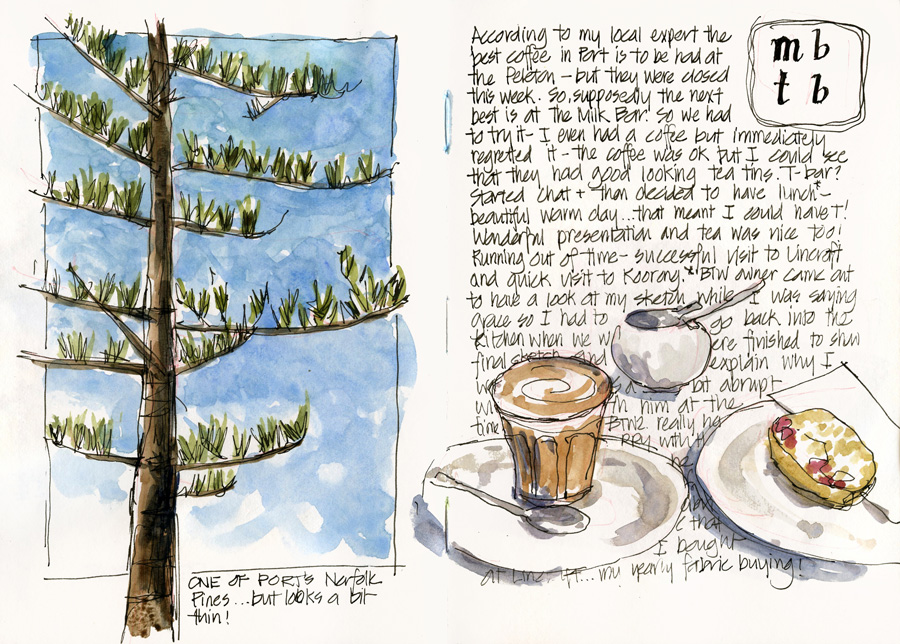 ONE OF PORT'S Norfolk
Pines...but looks a bit
thin!
According to my local expert the
best coffee in Port is to be had at
the Peleton - but they were closed
this week. So, supposedly the next
best is at the Milk Bar! So we had
to try it - I even had a coffee but immediately
regretted it - the coffee was ok but I could see
that they had good looking tea tins. T-bar?
Started chat + then decided to have lunch* -
beautiful warm day...that meant I could have T!
Wonderful presentation and tea was nice too!
Running out of time - successful visit to Lincraft
and quick visit to Koorong. * BTW owner came out
to have a look at my sketch while I was saying
grace so I had to go back into the
kitchen when we were finished to show
final sketch and explain why I
was a bit abrupt
with him at the
time
BTW2. really
with the
that
I bought
at Lincraft... my yearly fabric buying!
mb
tb